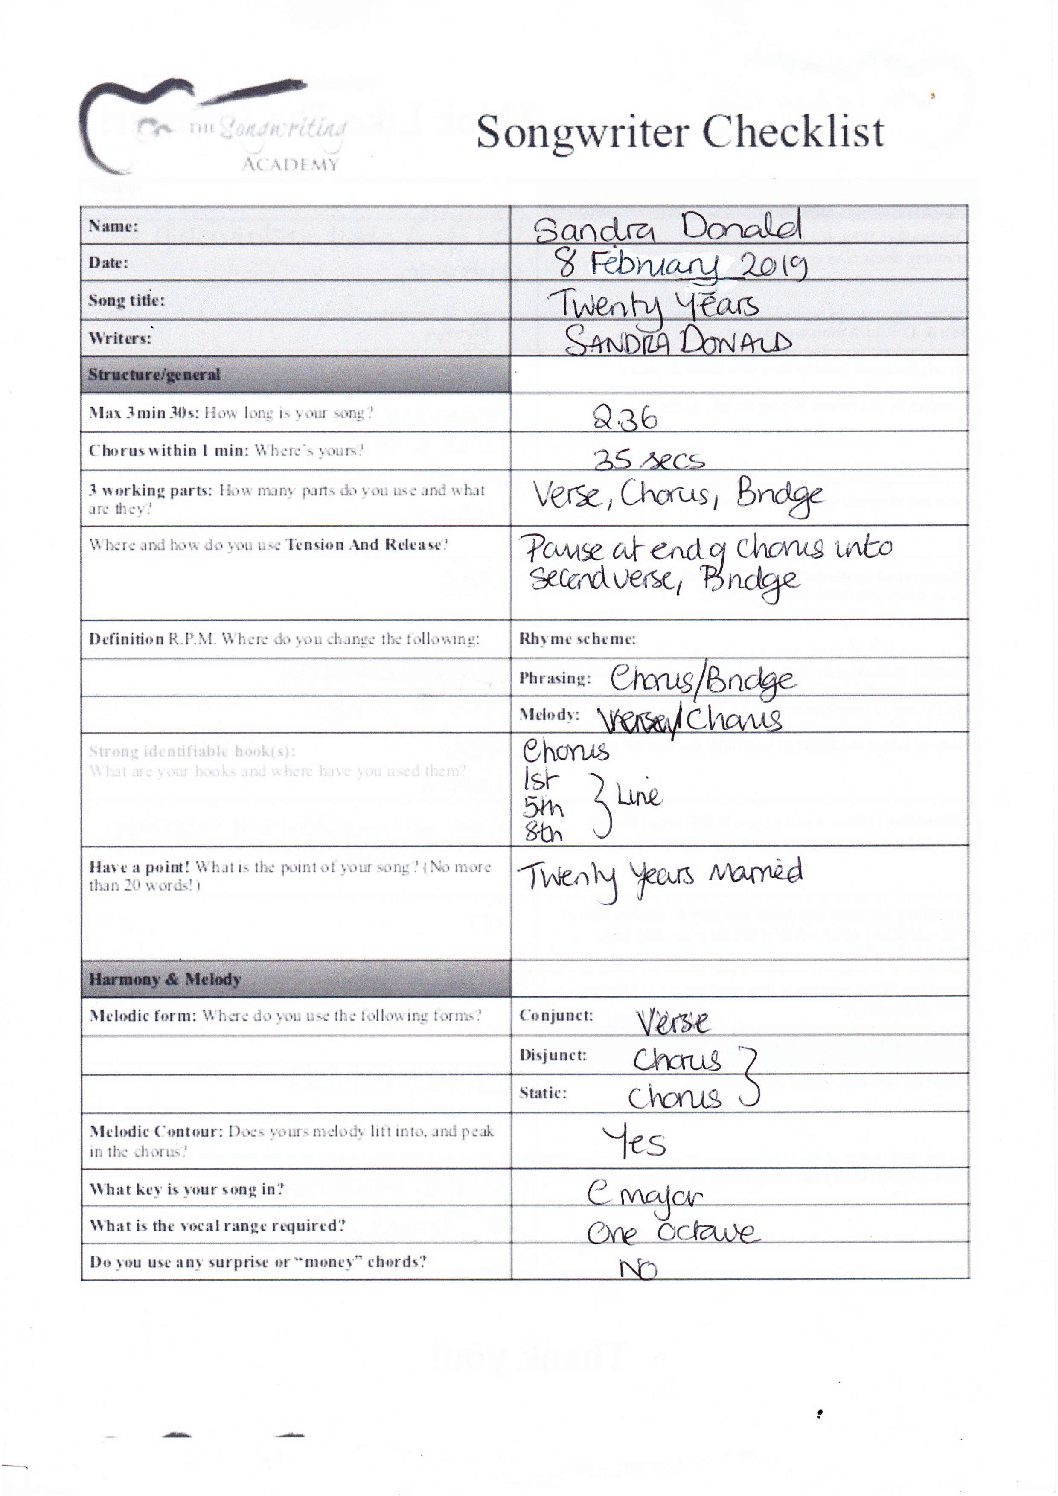 THE Songwriting
ACADEMY
Songwriter Checklist
Name: Sandra Donald
Date: 8 February 2019
Song title: Twenty Years
Writers: SANDRA DONALD
Structure/general
Max 3min 30s: How long is your song? 2.36
Chorus within 1 min: Where's yours? 35 secs
3 working parts: How many parts do you use and what
are they?
Verse, Chorus, Bridge
Where and how do you use Tension And Release?
Pause at end of Chorus into
second verse, Bridge
Definition R.P.M. Where do you change the following: Rhyme scheme:
Phrasing: Chorus/Bridge
Melody: Verse/Chorus
Strong identifiable hook(s):
What are your hooks and where have you used them?
Chorus
1st
5th } Line
8th
Have a point! What is the point of your song? (No more
than 20 words!)
Twenty Years Married
Harmony & Melody
Melodic form: Where do you use the following forms? Conjunct: Verse
Disjunct: Chorus
Static: Chorus
Melodic Contour: Does yours melody lift into, and peak
in the chorus?
Yes
What key is your song in? C major
What is the vocal range required? One Octave
Do you use any surprise or "money" chords? NO
Thank you!